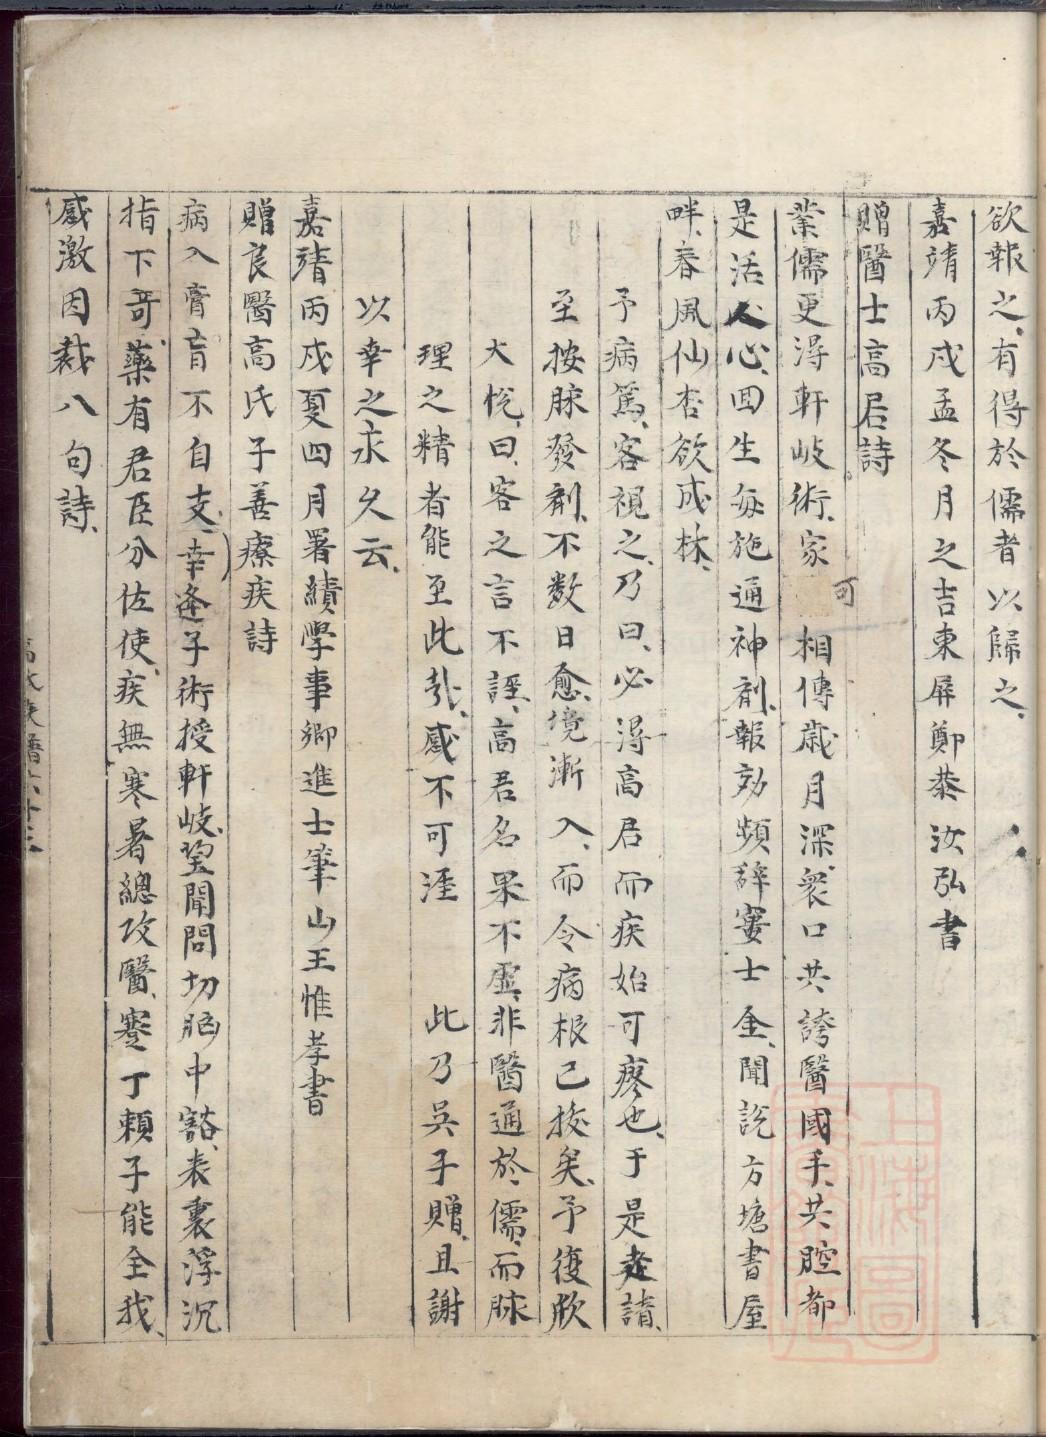 欲報之、有得於儒者以歸之、
嘉靖丙戌孟冬月之吉東屏鄭恭汝弘書
贈醫士高君詩
業儒更得軒岐術、家可相傳歲月深、衆口共誇醫國手、共腔都
是活人心、回生每施通神劑、報効頻辭窶士金、聞説方塘書屋
畔、春風仙杏欲成林、
予病篤、客視之、乃曰、必得高君而疾始可瘳也、于是走請、
至按脉發劑、不数日愈、境漸入、而令病根已拔矣、予復欣
大悅、曰、客之言不誣、高君名果不虛、非醫通於儒、而脉
理之精者能至此哉、感不可涯 此乃吳子贈、且謝
以幸之永久云、
嘉靖丙戌夏四月署績學事鄉進士筆山王惟孝書
贈良醫高氏子善療疾詩
病入膏肓不自支、幸逢子術授軒岐、望聞問切胸中豁、表裏浮沉
指下奇、藥有君臣分佐使、疾無寒暑總攻醫、蹇丁賴子能全我、
感激因裁八句詩、
上海圖